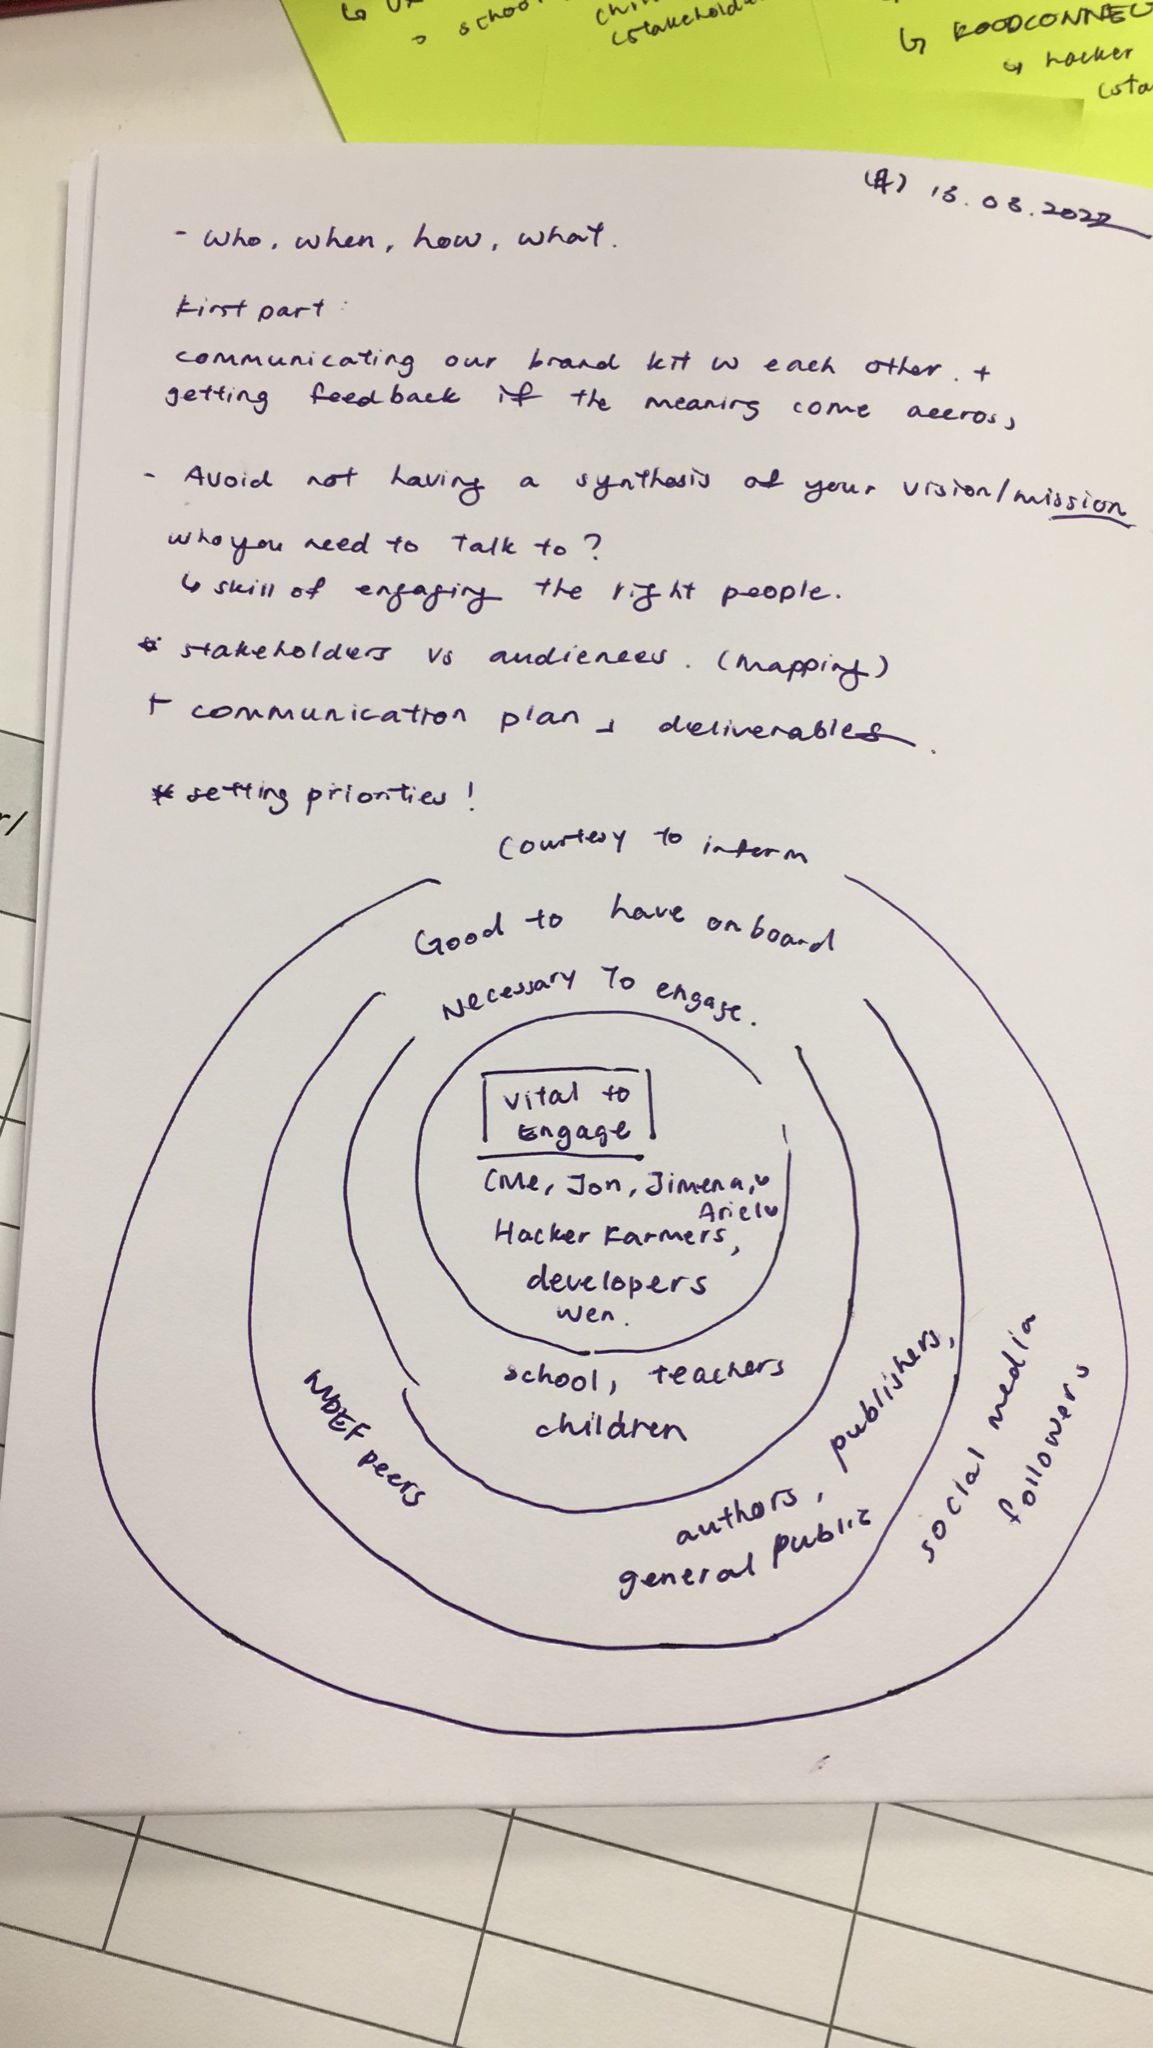 school
(stakeholde
FOODCONNEC
hacker
(sta
(#) 18.03.2022
- who, when, how, what.
First part:
communicating our brand kit w each other. +
getting feedback if the meaning come accross
- Avoid not having a synthesis of your vision/mission
who you need to talk to?
↳ skill of engaging the right people.
* stakeholders vs audiences. (mapping)
+ communication plan + deliverables.
* setting priorities!
Courtesy to inform
Good to have onboard
Necessary To engage.
Vital to
Engage
(Me, Jon, Jimena,
Ariel
Hacker Farmers,
developers
Wen.
school, teachers
children
MDEF peers
authors, publishers,
general public
social media
followers